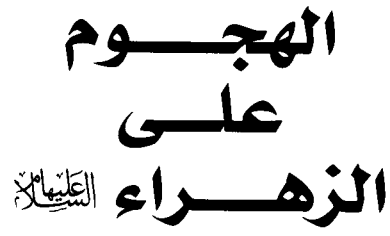 الهجـــوم
علـــى
الزهـــراء عليها السلام